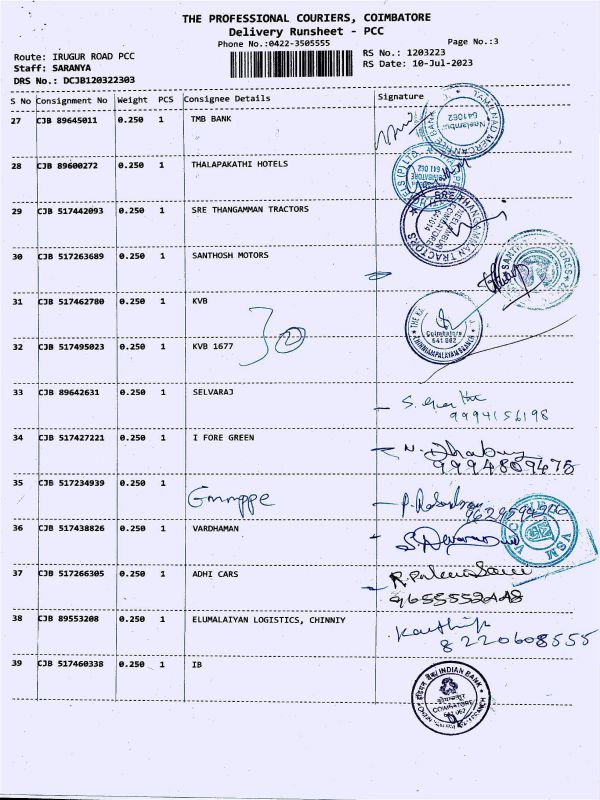 THE PROFESSIONAL COURIERS, COIMBATORE
Delivery Runsheet - PCC
Phone No.:0422-3505555
Page No.:3
Route: IRUGUR ROAD PCC
RS No.: 1203223
Staff: SARANYA
RS Date: 10-Jul-2023
DRS No.: DCJB120322303
S No Consignment No Weight PCS Consignee Details Signature
27 CJB 89645011 0.250 1 TMB BANK
TAMILNAD MERCANTILE BANK
Neelambur
641062
28 CJB 89600272 0.250 1 THALAPAKATHI HOTELS
COIMBATORE
641 062
29 CJB 517442093 0.250 1 SRE THANGAMMAN TRACTORS
SRE THANGAMMAN TRACTORS
30 CJB 517263689 0.250 1 SANTHOSH MOTORS
31 CJB 517462780 0.250 1 KVB
30
Coimbatore
641 062
CHINNIAMPALAYAM BRANCH
32 CJB 517495023 0.250 1 KVB 1677
33 CJB 89642631 0.250 1 SELVARAJ
9994156198
34 CJB 517427221 0.250 1 I FORE GREEN
9994809475
35 CJB 517234939 0.250 1
36 CJB 517438826 0.250 1 VARDHAMAN
VSM
37 CJB 517266305 0.250 1 ADHI CARS
9655552448
38 CJB 89553208 0.250 1 ELUMALAIYAN LOGISTICS, CHINNIY
Karthik
8220608555
39 CJB 517460338 0.250 1 IB
इंडियन बैंक INDIAN BANK
COIMBATORE
641 062